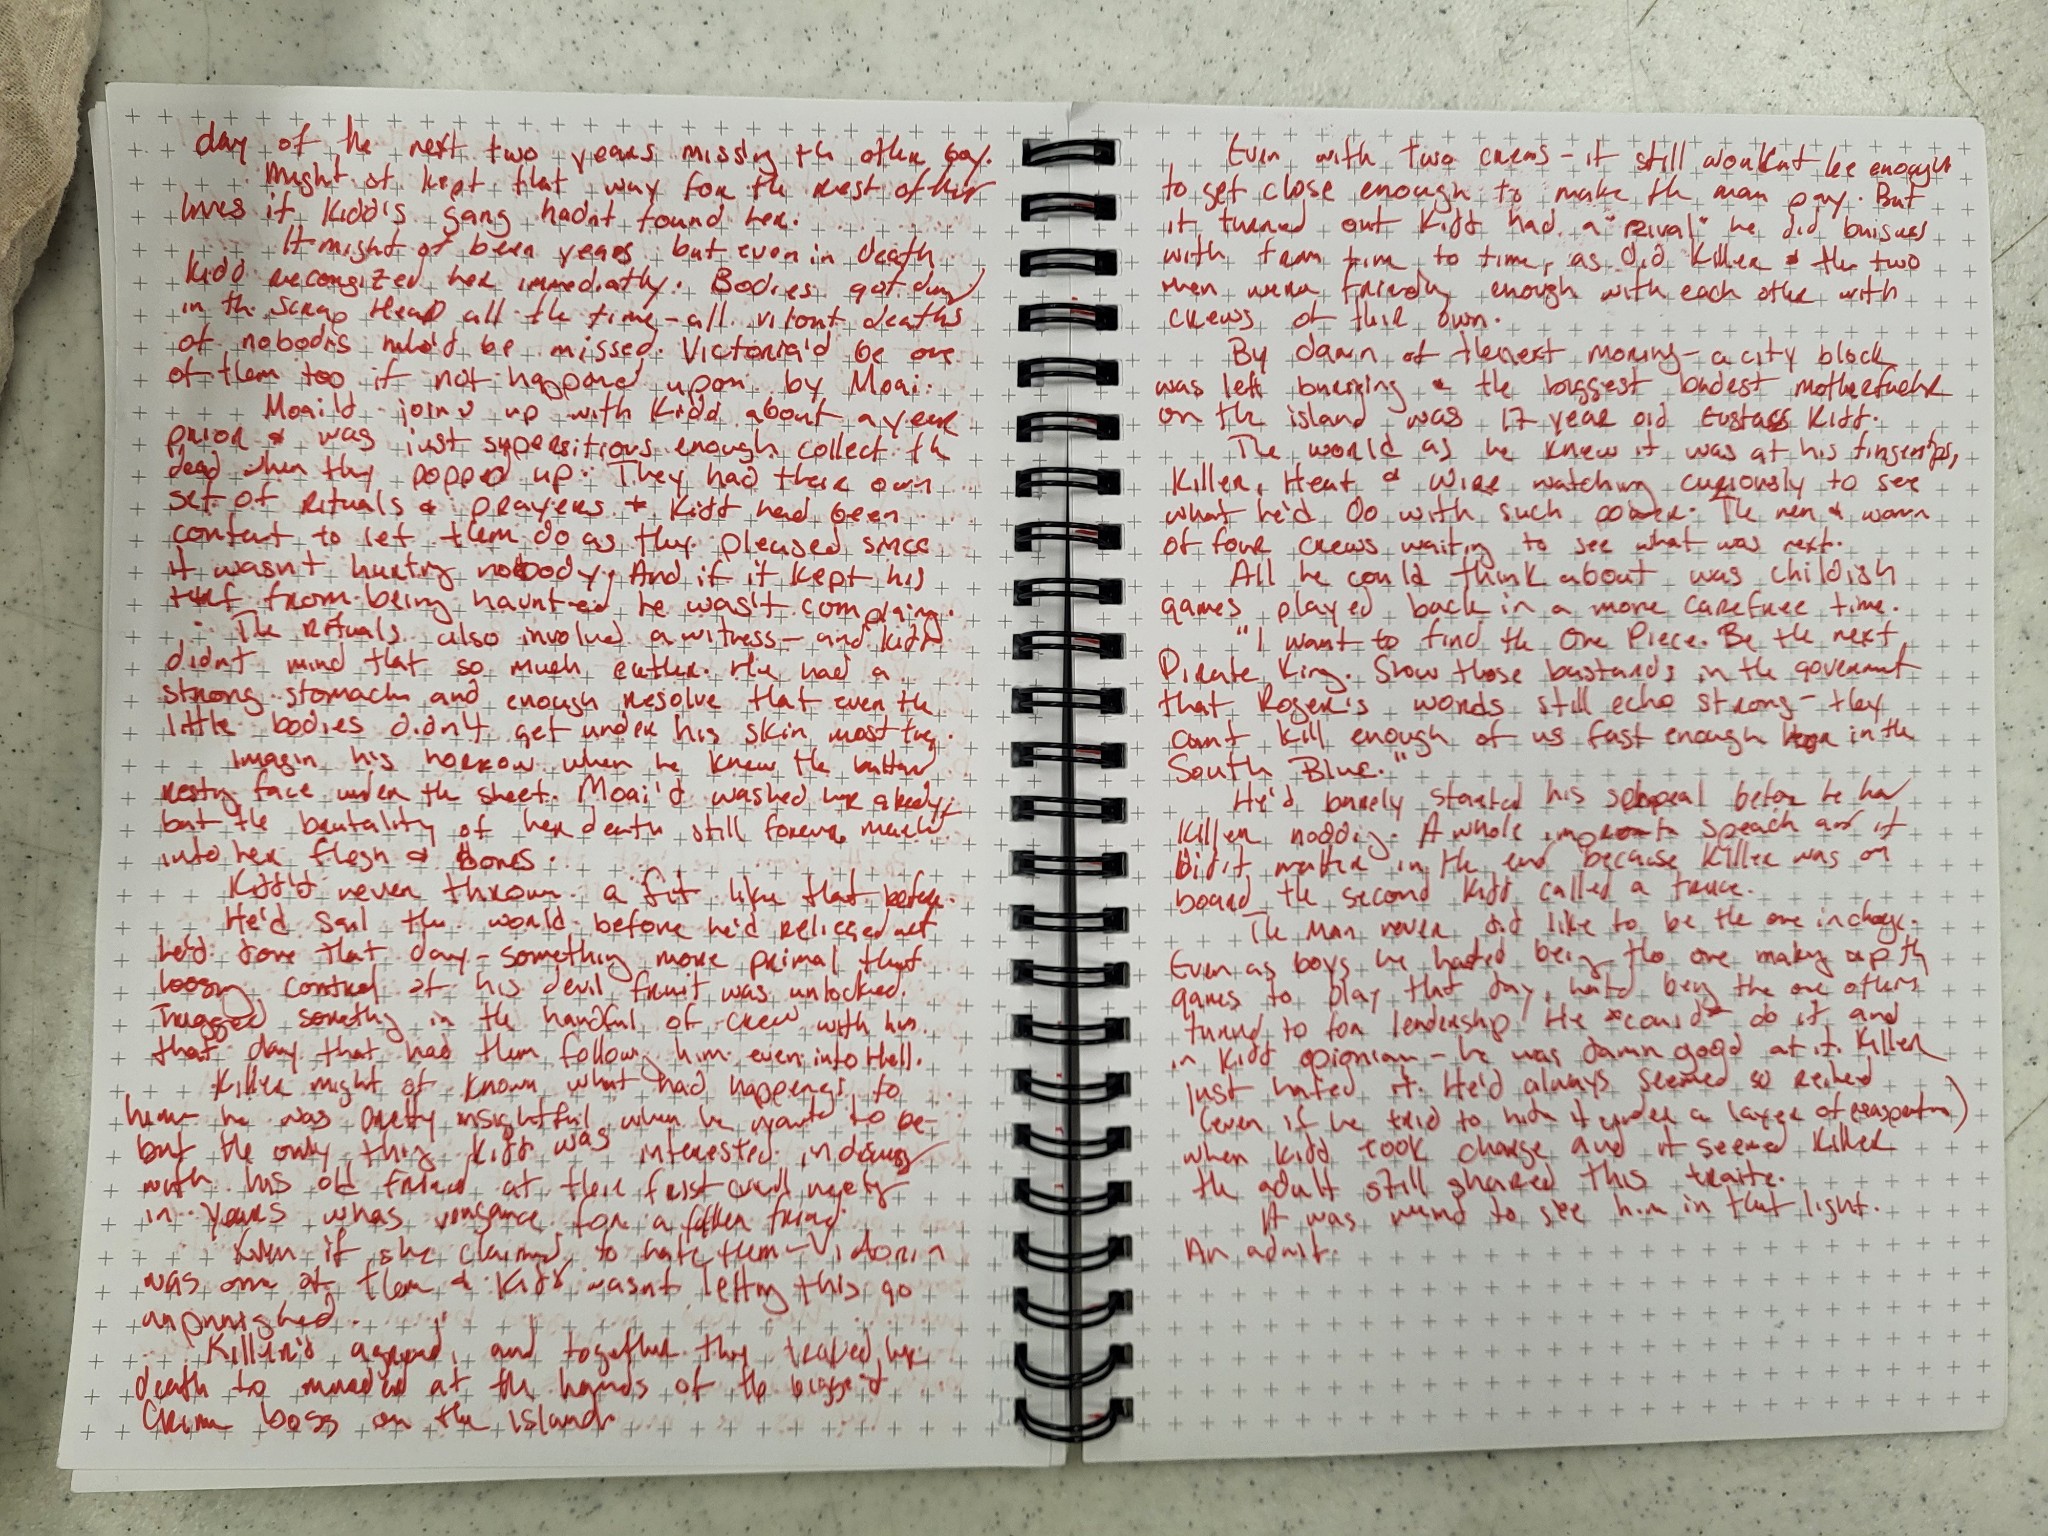 day of the next two years missing th other boy.
Might of kept that way for the rest of their
lives if Kidd's gang hadnt found her.
It might of been years but even in death
Kidd recongized her immediatly. Bodies got dump
in th scrap Heap all the time - all vilont deaths
of nobodis who'd be missed. Victoria'd be one
of them too if not happend upon by Moai.
Moai'd join up with Kidd about a year
prior & was just supersitious enough collect th
dead when they popped up. They had their own
set of rituals & prayers & Kidd had been
content to let them do as they pleased since
it wasn't hurtng nobody. And if it kept his
turf from being haunted he was't complaing.
The rituals also involved a witness - and Kidd
didnt mind that so much either. He had a
strong stomach and enough resolve that even the
little bodies didn't get under his skin most
Imagin his horror when he knew the
restng face under the sheet. Moai'd washed her alredy,
but the brutality of her death still forever
into her flesh & Bones.
Kidd'd never thrown a fit like that before.
He'd sail the world before he'd
he'd done that day - something more primal that
loosng control of his devil fruit was unlocked.
Trigged somethng in the handful of crew with him
that day that had them follow him even into Hell.
Killer might of known what had happened to
him he was pretty insightful when he wantd to be -
but the only thing Kidd was interested in
with his old friend at their frist
in years whas vengance for a fallen friend.
Even if she claimed to hate them - Victoria
was one of them & Kidd wasnt letting this go
unpunished.
Killer'd agreed, and together they traked her
death to at the hands of the biggest
Crime boss on the island.
Even with two crews - it still wouldnt be enough
to get close enough to make th man pay. But
it turned out Kidd had a "rival" he did
with from time to time, as did Killer & the two
men were friendly enough with each other with
crews of their own.
By dawn of the next morning - a city block
was left burning & the biggest badest motherfucker
on the island was 17 year old Eustass Kidd.
The world as he knew it was at his fingertips,
Killer, Heat & Wire watching curiously to see
what he'd Do with such power. The men & women
of four crews waiting to see what was next.
All he could think about was childish
games played back in a more carefree time.
"I want to find the One Piece. Be the next
Pirate King. Show those bastards in the goverment
that Roger's words still echo strong - they
cant kill enough of us fast enough in the
South Blue."
He'd barely started his before he had
Killer noddig. A whole speach and it
Didit matter in the end because Killer was on
board the second Kidd called a truce.
The Man never did like to be the one in charge.
Even as boys he hated being the one making up th
games to play that day, hated beng the one others
turned to for leadership. He *could* do it and
in Kidd opionian - he was damn good at it. Killer
just hated it. He'd always seemed so
(even if he tried to hide it under a layer of )
when Kidd took charge and it seemed Killer
the adult still shared this traite.
It was to see him in that light.
An adult.